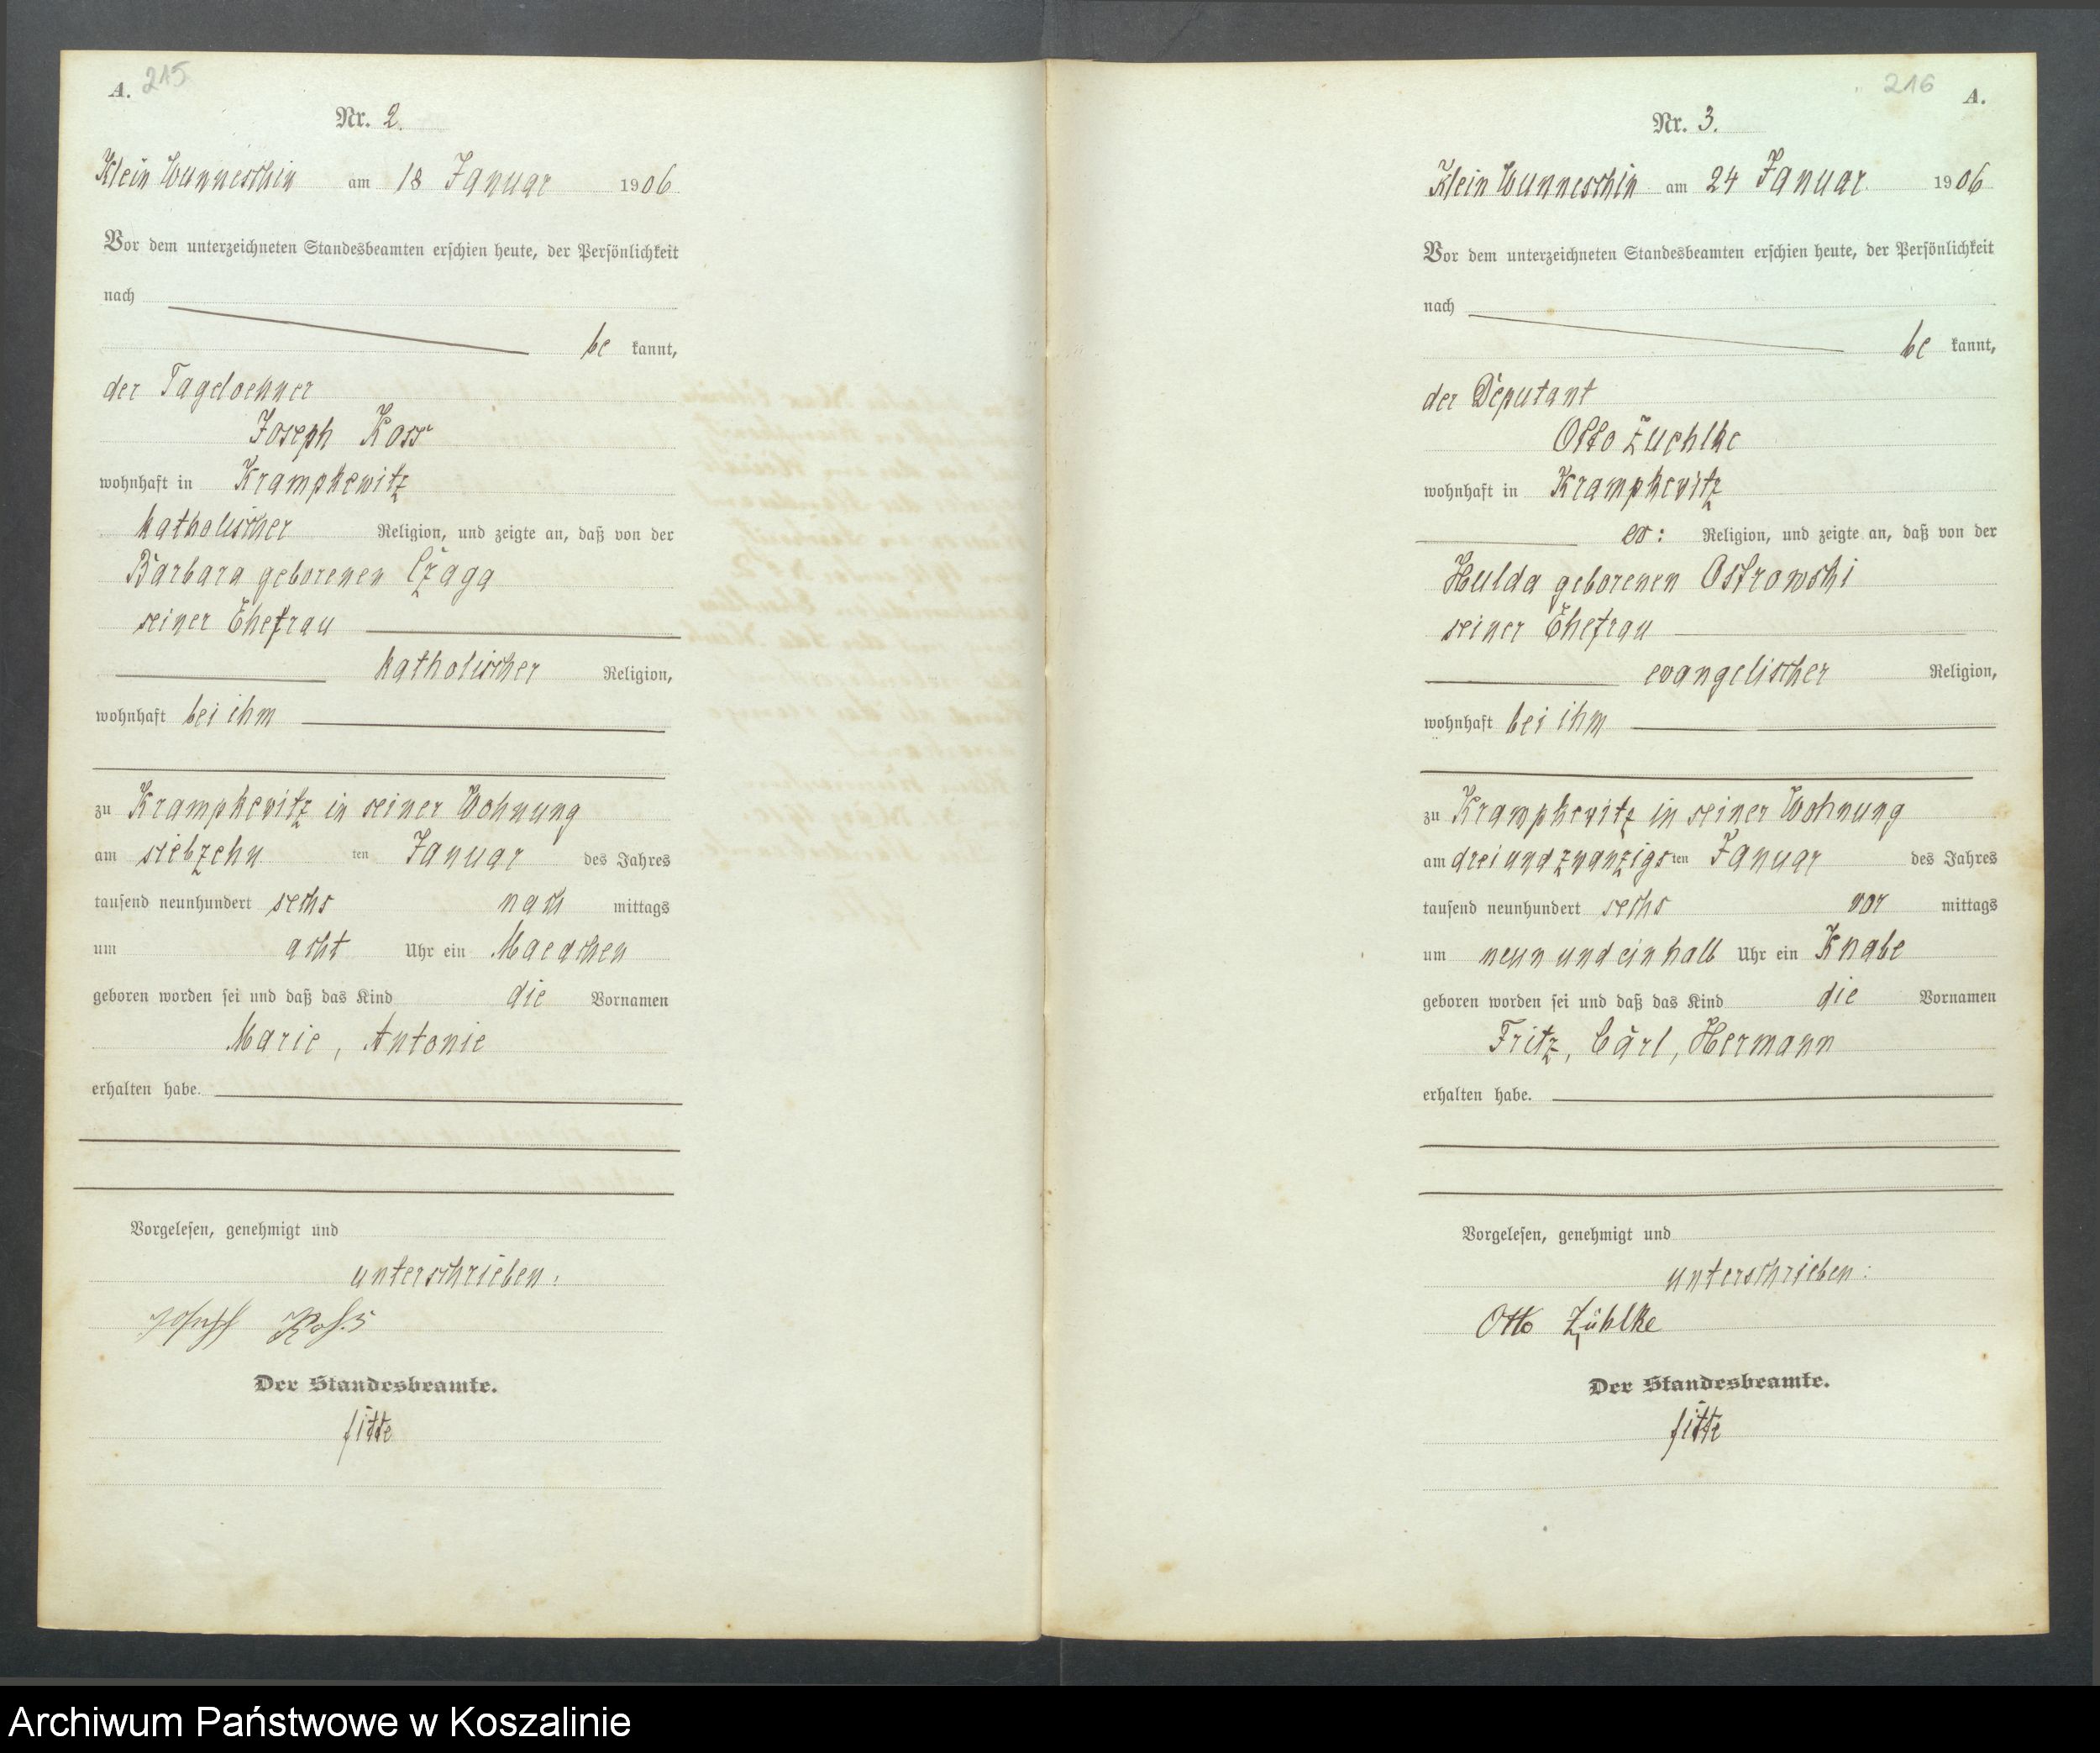 A. 215
Nr. 2.
Klein Wunneschin am 18 Januar 1906
Vor dem unterzeichneten Standesbeamten erschien heute, der Persönlichkeit
nach
be kannt,
der Tageloehner
Joseph Koss
wohnhaft in Krampkewitz
katholischer Religion, und zeigte an, daß von der
Barbara geborenen Czaga
seiner Ehefrau
katholischer Religion,
wohnhaft bei ihm
zu Krampkewitz in seiner Wohnung
am siebzehn ten Januar des Jahres
tausend neunhundert sechs nach mittags
um acht Uhr ein Maedchen
geboren worden sei und daß das Kind die Vornamen
Marie, Antonie
erhalten habe.
Vorgelesen, genehmigt und
unterschrieben:
Joseph Koss
Der Standesbeamte.
fitte
216 A.
Nr. 3.
Klein Wunneschin am 24 Januar 1906
Vor dem unterzeichneten Standesbeamten erschien heute, der Persönlichkeit
nach
be kannt,
der Deputant
Otto Zuehlke
wohnhaft in Krampkewitz
ev: Religion, und zeigte an, daß von der
Hulda geborenen Ostrowski
seiner Ehefrau
evangelischer Religion,
wohnhaft bei ihm
zu Krampkewitz in seiner Wohnung
am dreiundzwanzigs ten Januar des Jahres
tausend neunhundert sechs vor mittags
um neun und ein halb Uhr ein Knabe
geboren worden sei und daß das Kind die Vornamen
Fritz, Carl, Hermann
erhalten habe.
Vorgelesen, genehmigt und
unterschrieben:
Otto Zühlke
Der Standesbeamte.
fitte
Archiwum Państwowe w Koszalinie